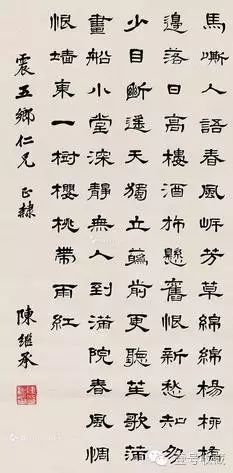 馬嘶人語春風岸芳草綿綿楊柳橋
邊落日高樓酒旆懸舊恨新愁知多
少目斷遙天獨立蘤前更聽笙歌滿
畫船小堂深靜無人到滿院春風惆
恨墻東一樹櫻桃帶雨紅
震五鄉仁兄 正隸
陳繼承
壹号收藏